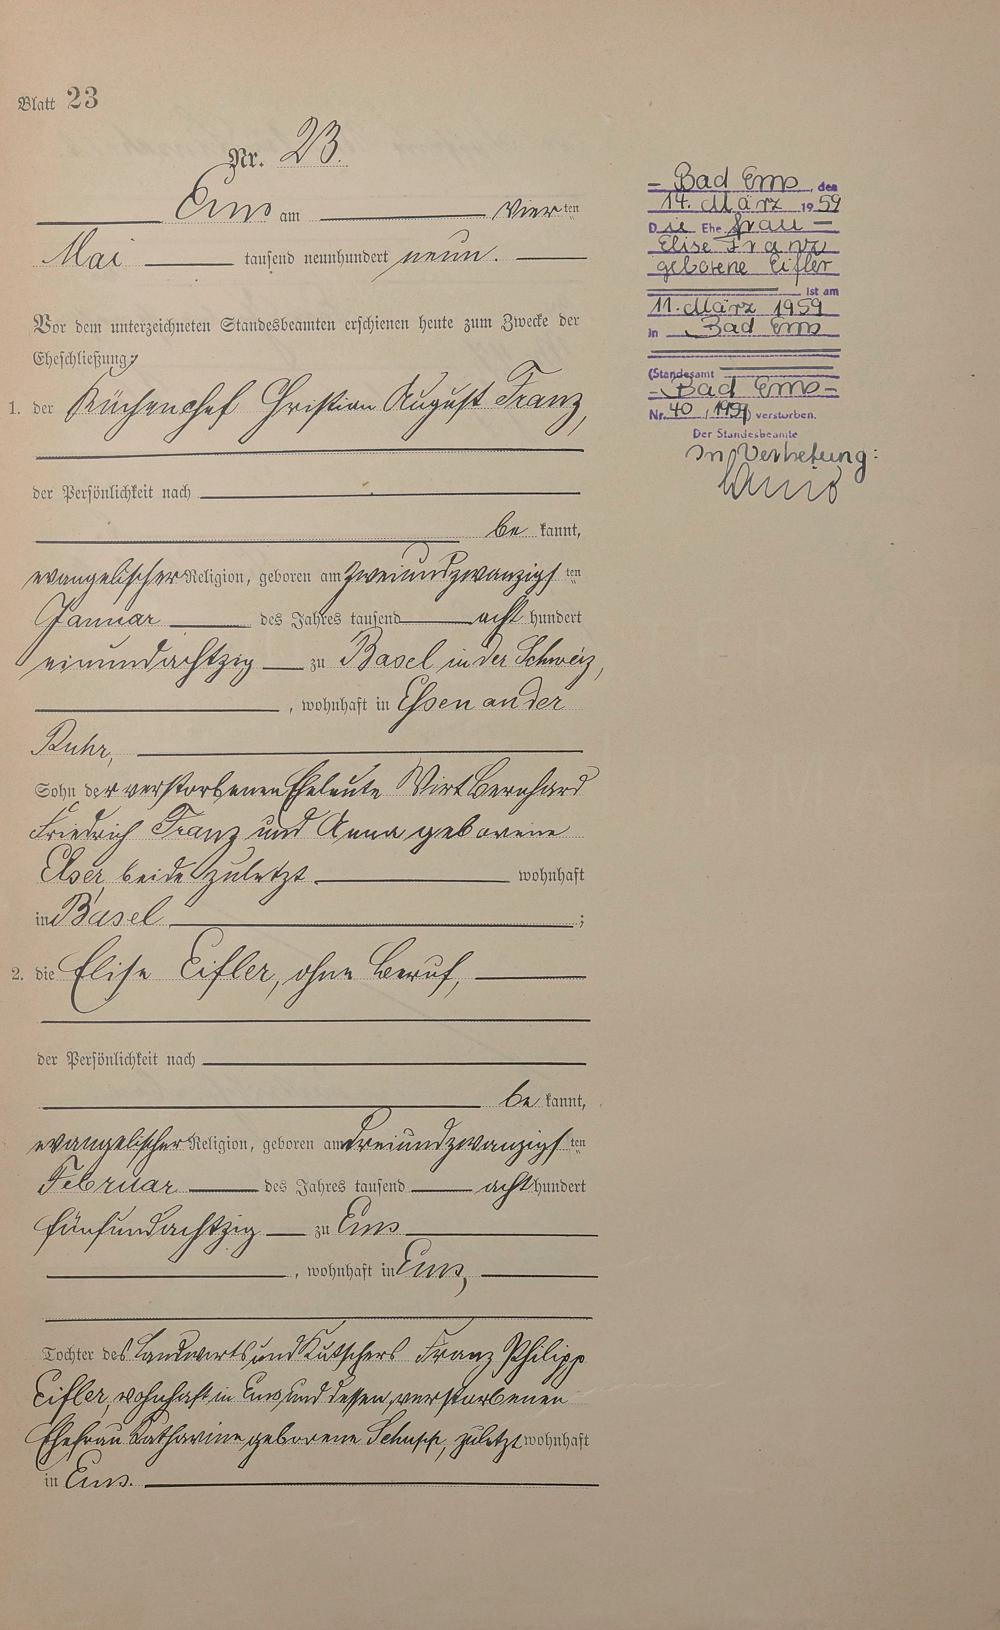 Blatt 23
Nr. 23.
Ems am Vierten
Mai tausend neunhundert neun.
Vor dem unterzeichneten Standesbeamten erschienen heute zum Zwecke der
Eheschließung:
1. der Küchenchef Christian August Franz,
der Persönlichkeit nach
be kannt,
evangelischer Religion, geboren am zweiundzwanzigsten
Januar des Jahres tausend acht hundert
einundachtzig zu Basel in der Schweiz,
, wohnhaft in Essen an der
Ruhr,
Sohn der verstorbenen Eheleute Wirt Bernhard
Friedrich Franz und Anna geborene
Elser, beide zuletzt wohnhaft
in Basel ;
2. die Elise Eifler, ohne Beruf,
der Persönlichkeit nach
be kannt,
evangelischer Religion, geboren am dreiundzwanzigsten
Februar des Jahres tausend acht hundert
fünfundachtzig zu Ems
, wohnhaft in Ems,
Tochter des Landwirts und Kutschers Franz Philipp
Eifler, wohnhaft in Ems und dessen verstorbenen
Ehefrau Katharine geborene Schupp, zuletzt wohnhaft
in Ems.
- Bad Ems, den
14. März 1959
Die Ehefrau -
Elise Franz
geborene Eifler
ist am
11. März 1959
in Bad Ems
(Standesamt
- Bad Ems -
Nr. 40 / 1959) verstorben.
Der Standesbeamte
In Vertretung: